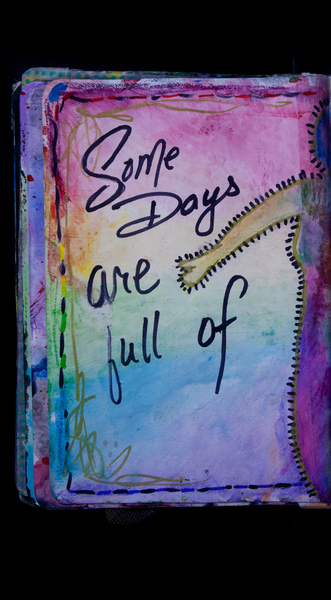 Some
Days
are
full of